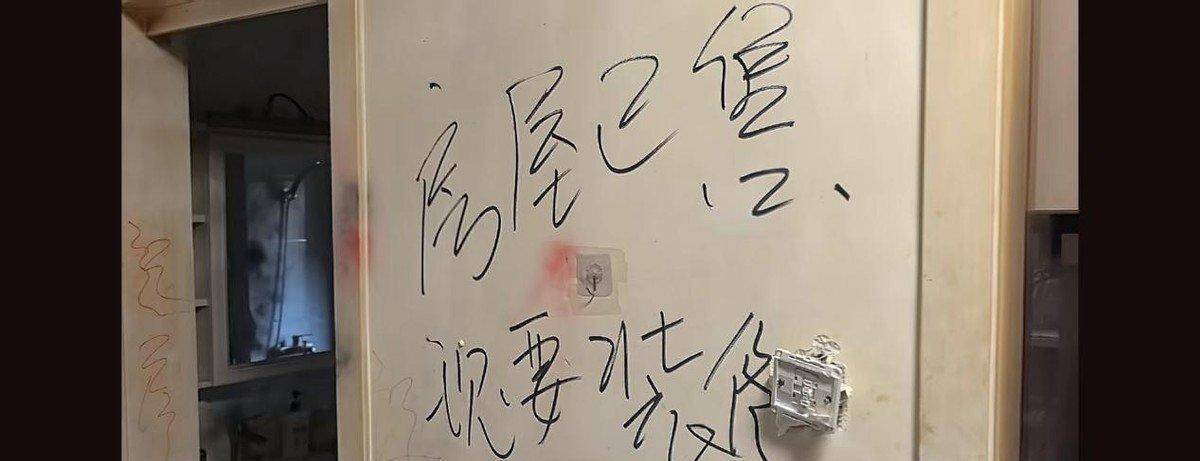 房屋已售
现要装修